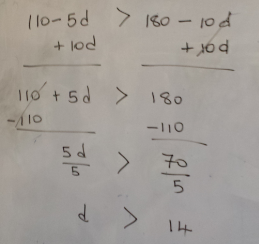 110 - 5d > 180 - 10d
+ 10d + 10d
110 + 5d > 180
-110 -110
5d/5 > 70/5
d > 14